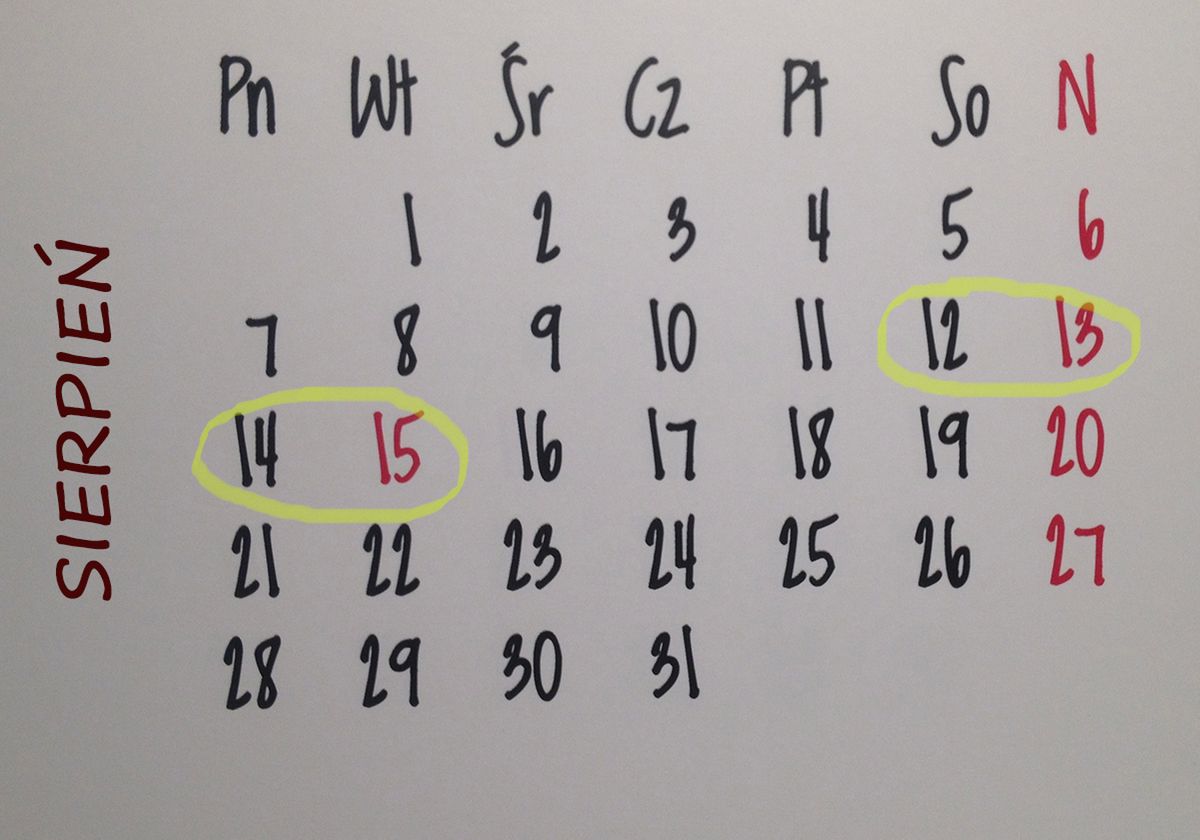 SIERPIEŃ
Pn Wt Śr Cz Pt So N
1 2 3 4 5 6
7 8 9 10 11 12 13
14 15 16 17 18 19 20
21 22 23 24 25 26 27
28 29 30 31